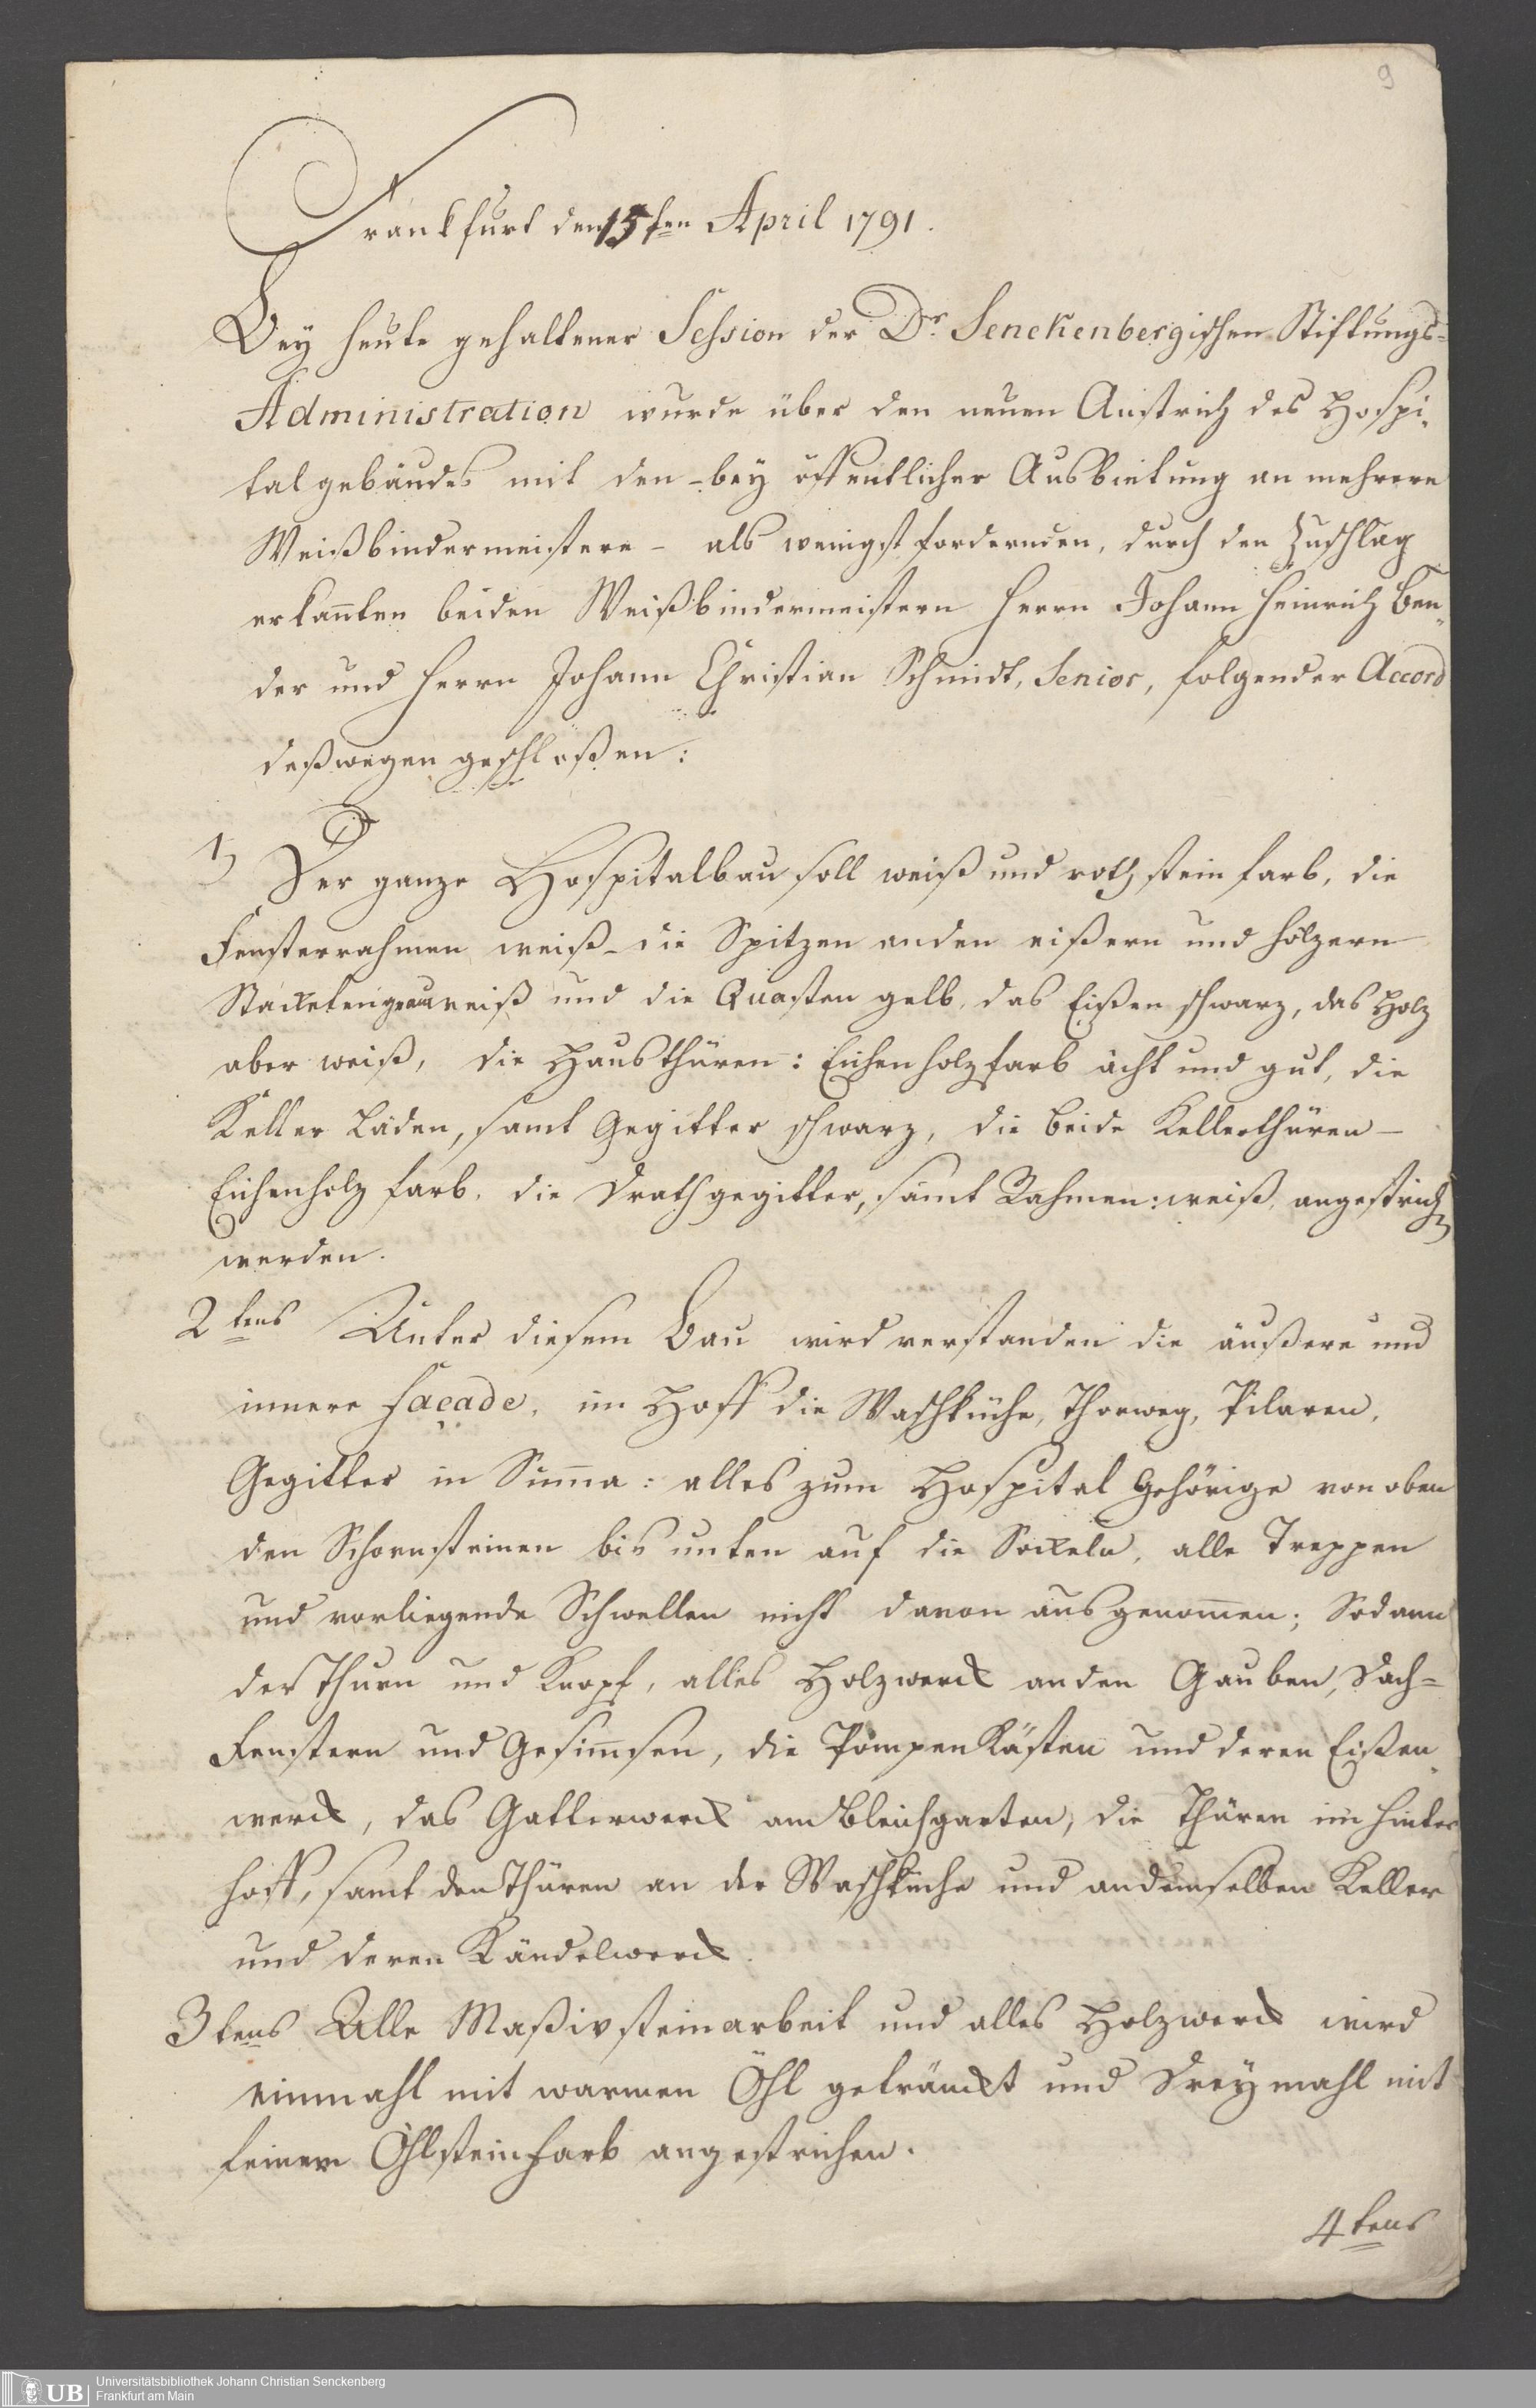 9
Frankfurt den 15ten April 1791.
Bey heute gehaltener Session der Dr. Senckenbergischen Stiftungs-
Administration wurde über den neuen Anstrich des Hospi-
talgebäudes mit den - bey öffentlicher Ausbietung an mehrere
Weißbindermeistere - als wenigst fordernden, durch den Zuschlag
erkan̄ten beiden Weißbindermeistern Herrn Johann Heinrich Ben-
der und Herrn Johann Christian Schmidt, Senior, folgender Accord
deßwegen geschloßen:
1) Der ganze Hospitalbau soll weiß und roth steinfarb, die
Fensterrahmen weiß - die Spitzen anden eißern und hölzern
Stacketen grau weiß und die Quasten gelb, das Eißen schwarz, das Holz
aber weiß, die Hausthüren: Eichenholzfarb ächt und gut, die
Keller Läden, samt Gegitter schwarz, die beide Kellerthüren -
Eichenholz farb, die Drathgegitter, samt Rahmen: weiß, angestrich
werden.
2tens Unter diesem Bau wird verstanden die äußere und
innere façade, im Hoff die Waschküche, Thorweg, Pilaren,
Gegitter in Sum̄a: alles zum Hospital Gehörige von oben
den Schornsteinen bis unten auf die Sockeln, alle Treppen
und vorliegende Schwellen nicht davon ausgenom̄en; Sodann
der Thurn und Knopf, alles Holzwerck anden Gauben, Dach-
Fenstern und Gesim̄sen, die Pompen Kästen und deren Eißen-
werck, das Gatterwerck am Bleichgarten, die Thüren im Hinter
hoff, samt den Thüren an der Waschküche und andemselben Keller
und deren Kändelwerck.
3tens Alle Maßivsteinarbeit und alles Holzwerck wird
einmahl mit warmen Öhl geträuckt und Dreymahl mit
feinem Öhlsteinfarb angestrichen.
4tens
UB Universitätsbibliothek Johann Christian Senckenberg
Frankfurt am Main